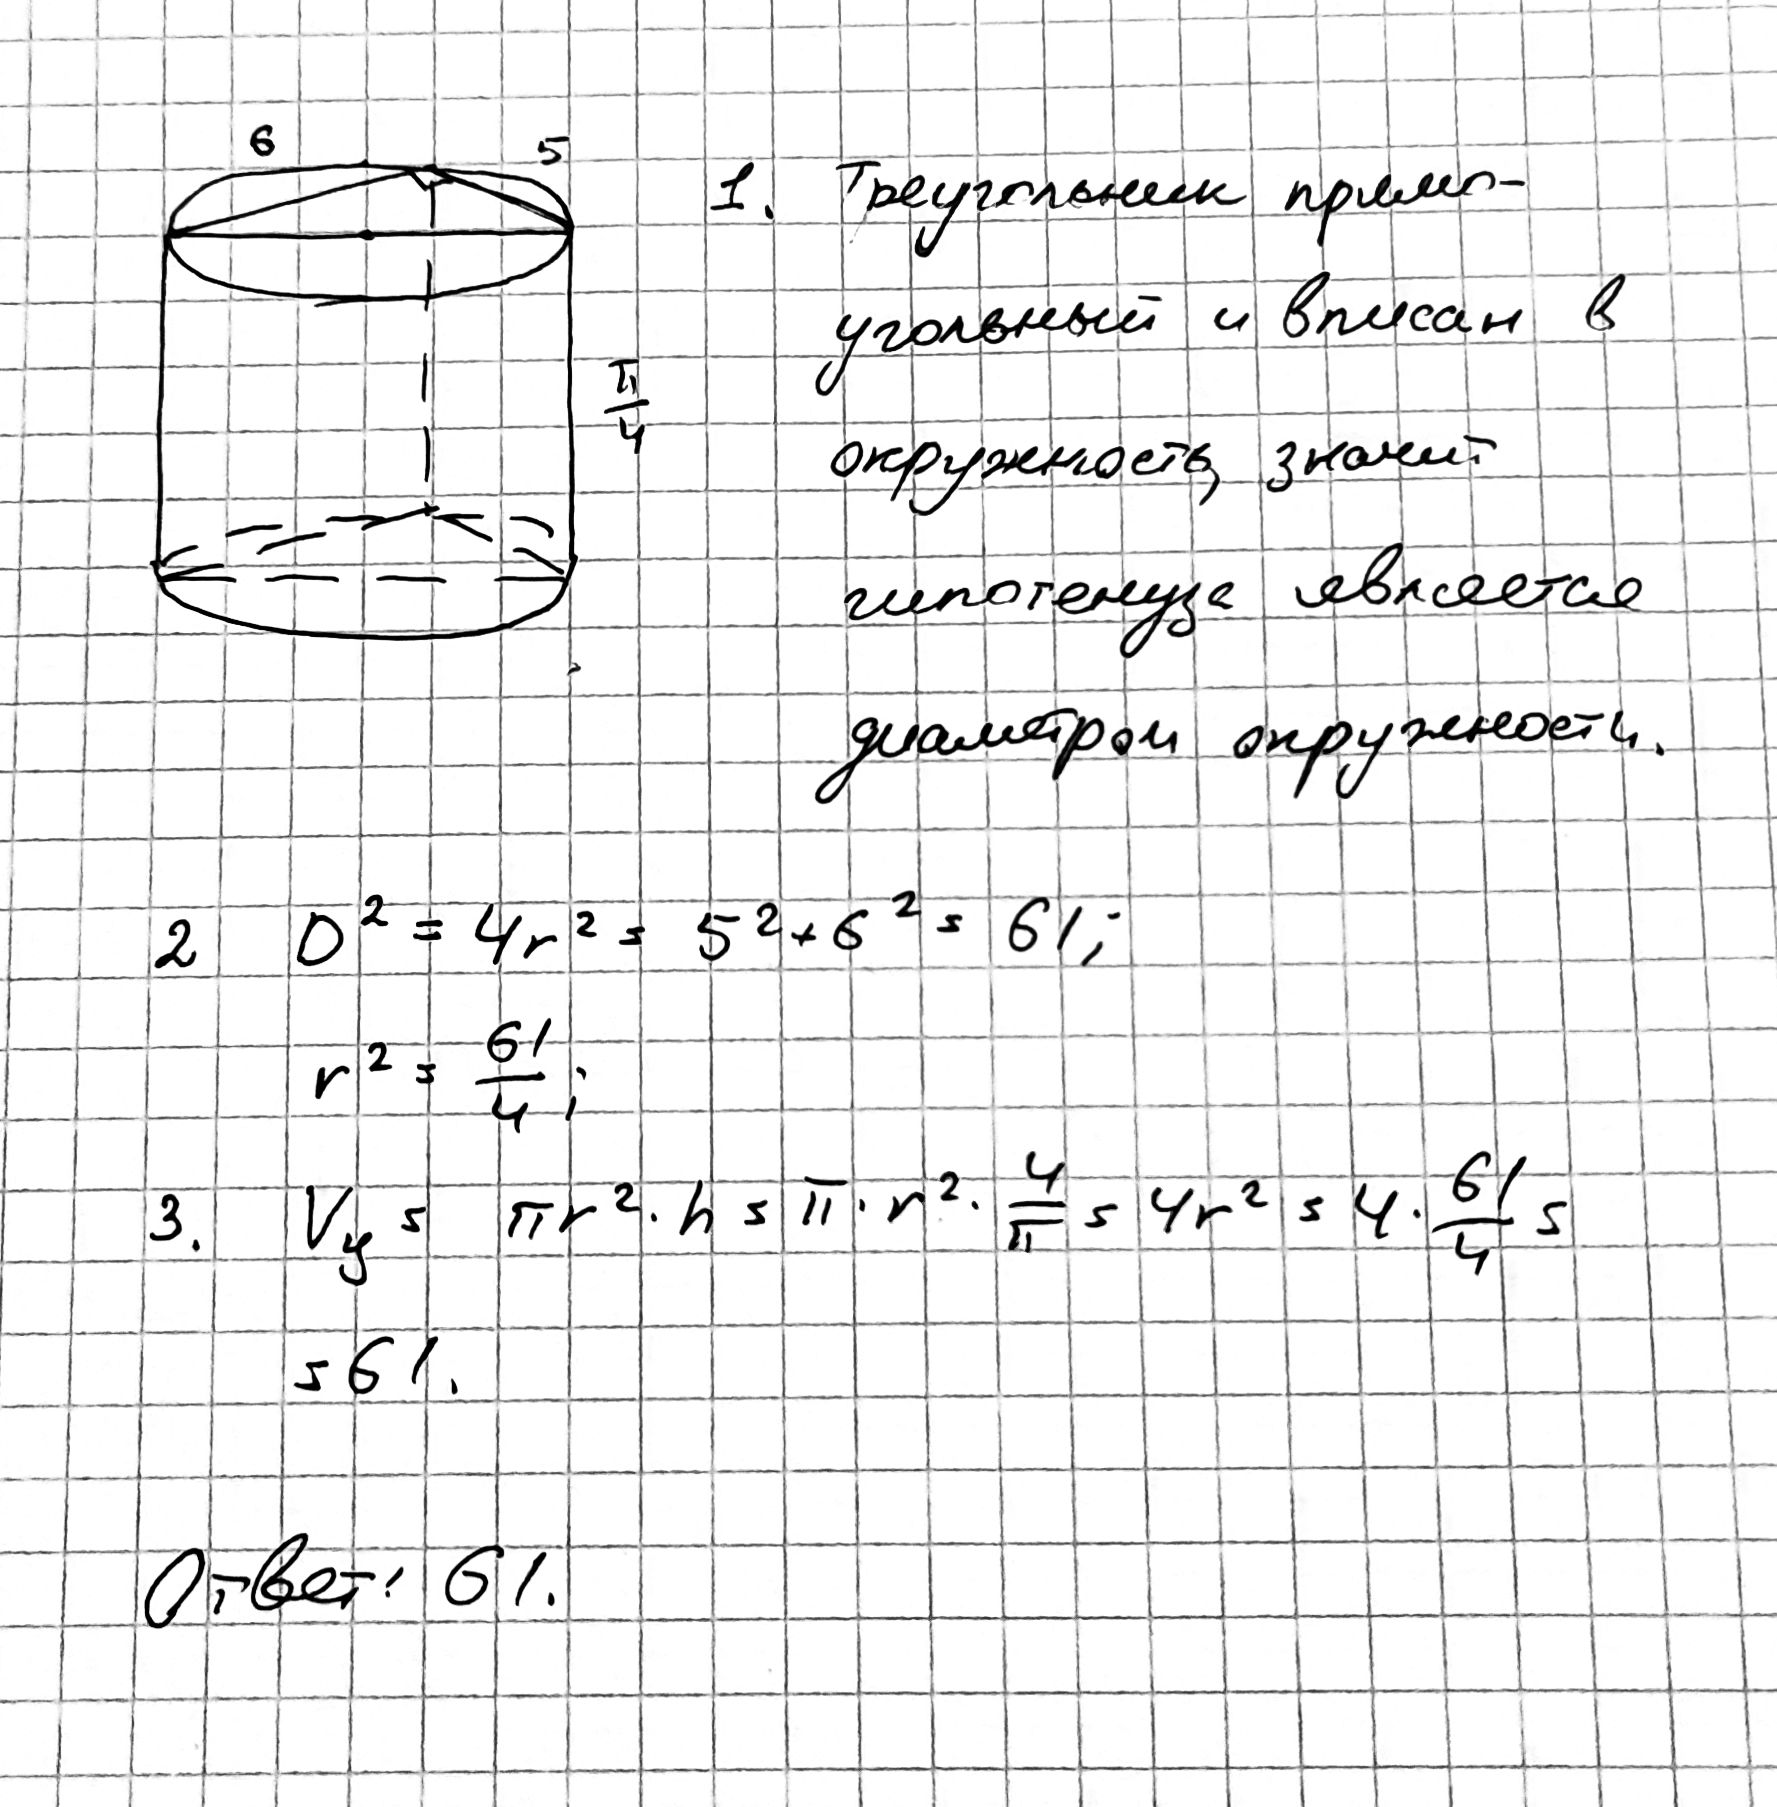 6 5
π/4
1. Треугольник прямо-
угольный и вписан в
окружность, значит
гипотенуза является
диаметром окружности.
2 D² = 4r² = 5² + 6² = 61;
r² = 61/4;
3. Vц = πr² · h = π · r² · 4/π = 4r² = 4 · 61/4 =
= 61.
Ответ: 61.